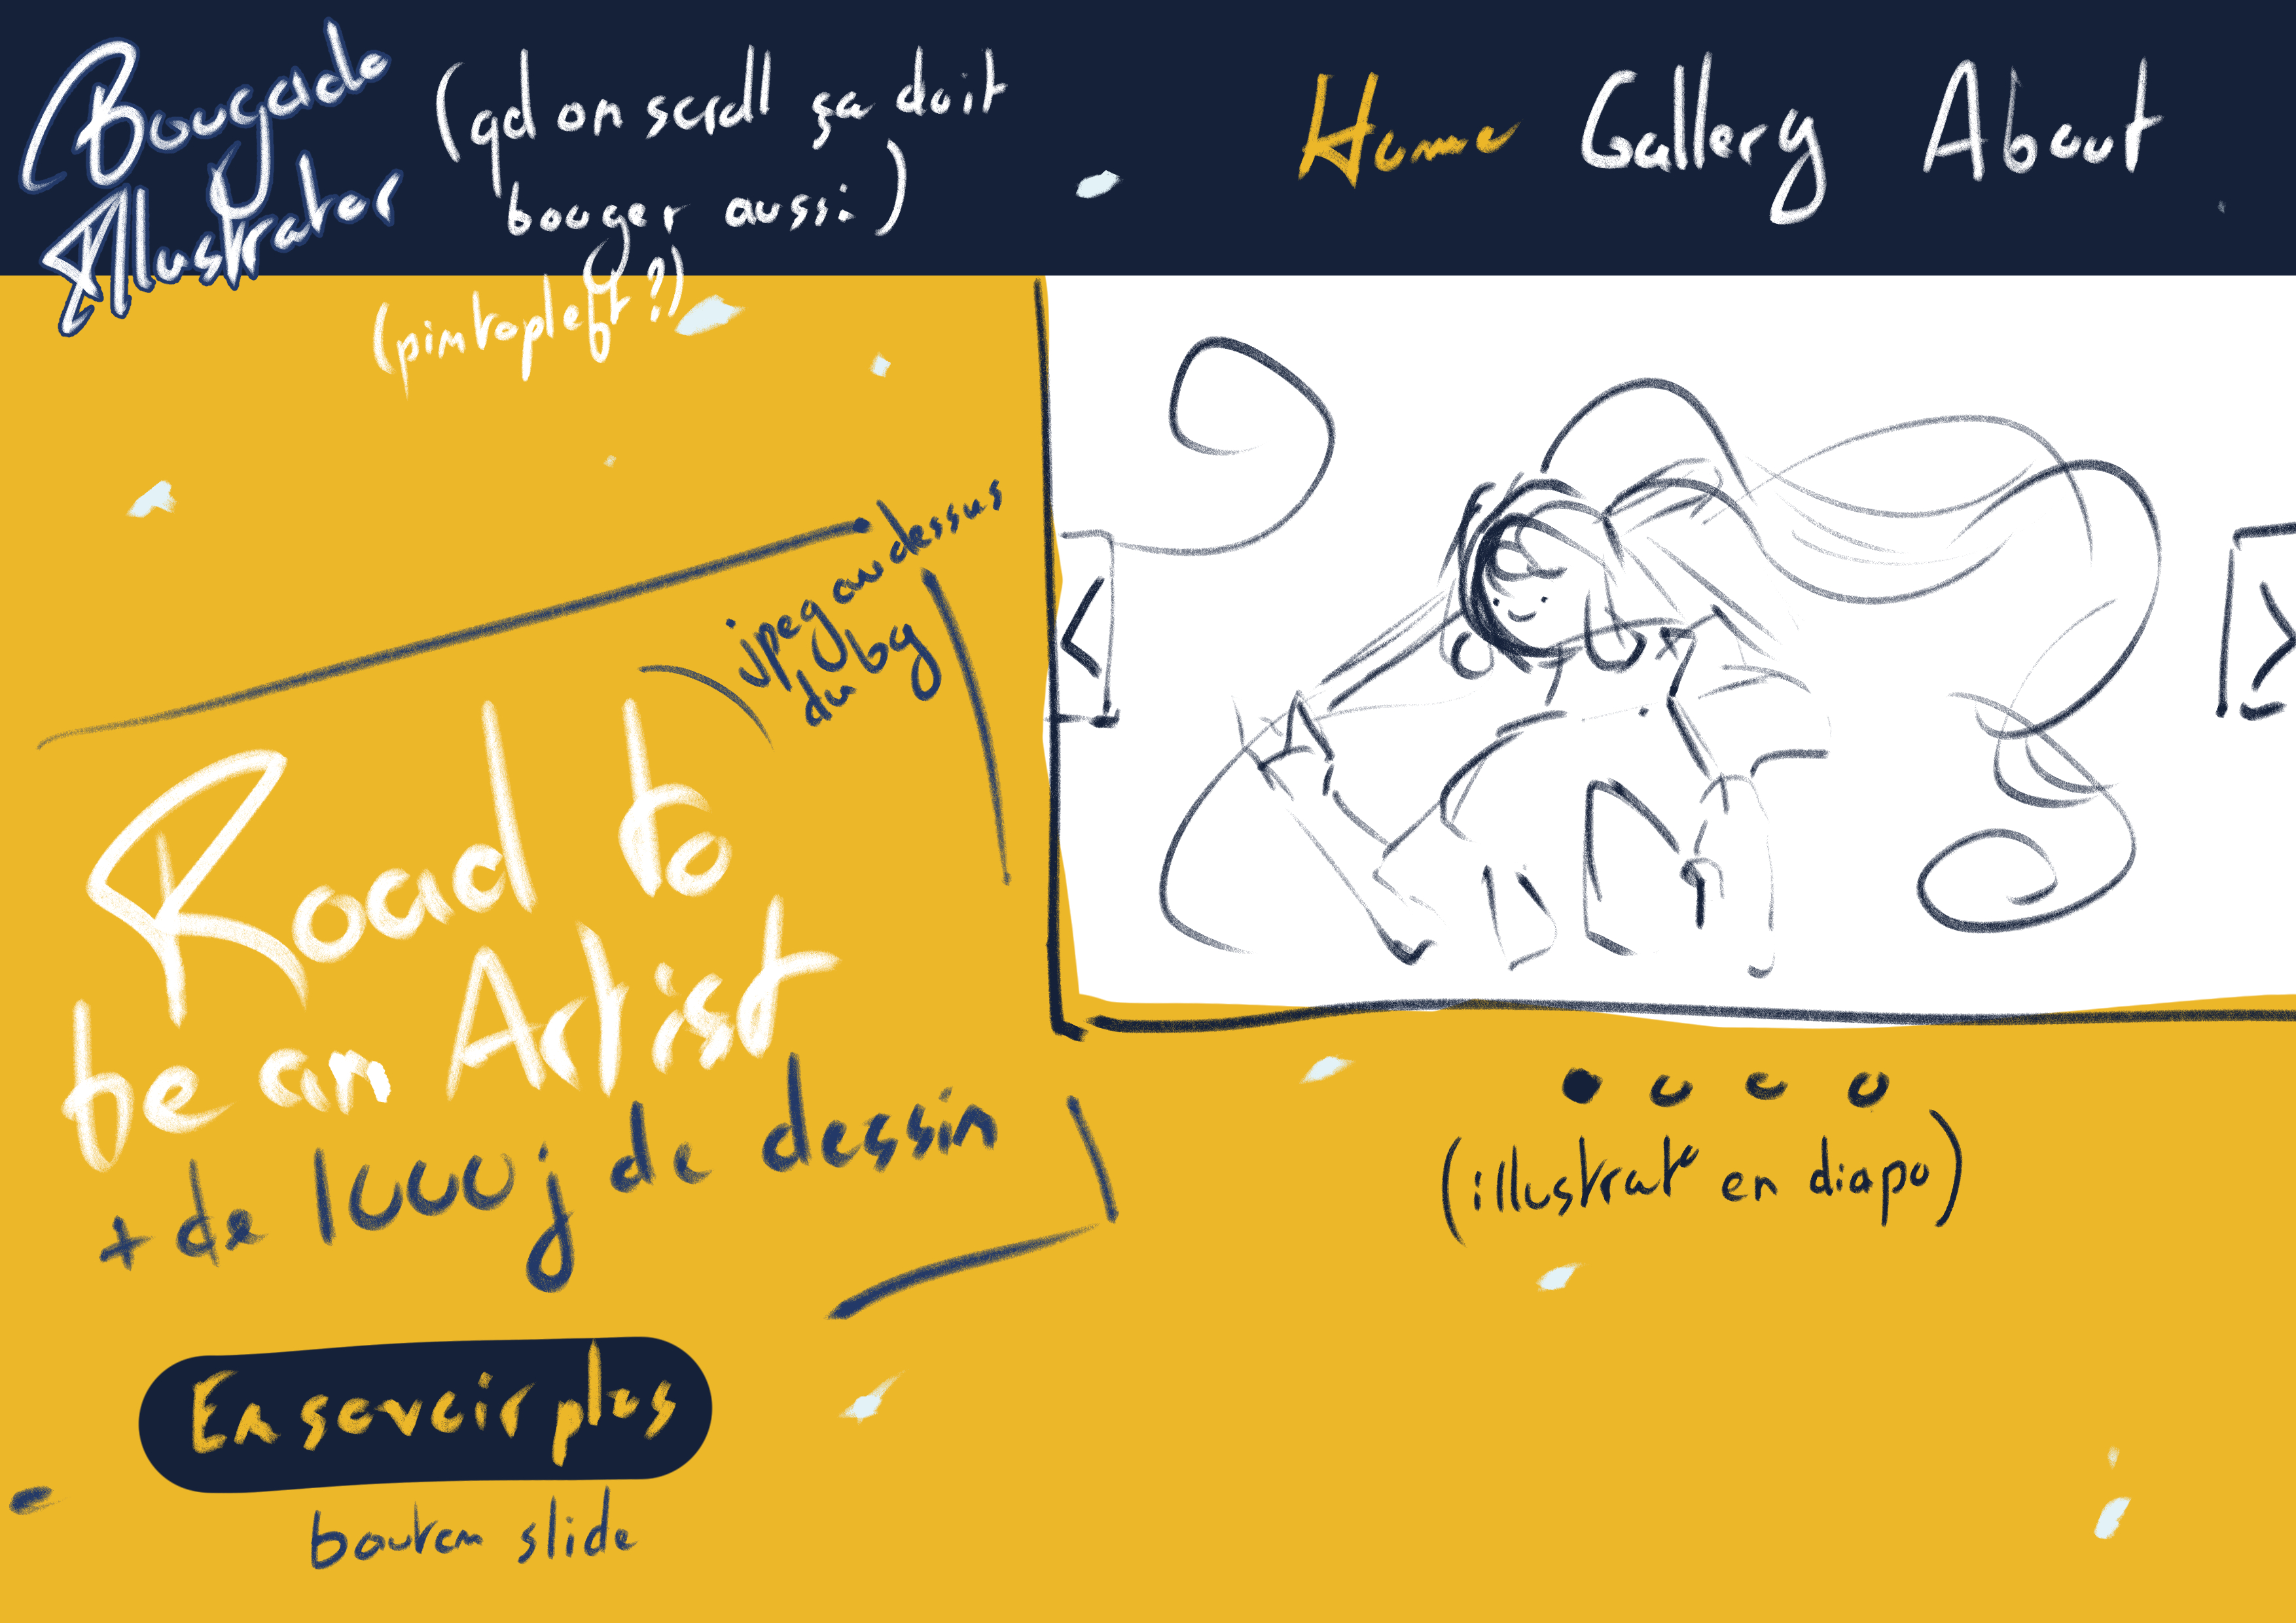 Bougado
Illustrator
(qd on scroll ça doit
bouger aussi)
(pin top left ?)
Home Gallery About
jpeg au dessus
du bg
Road to
be an Artist
+ de 1000 j de dessin
En savoir plus
bouton slide
<
>
(illustrat° en diapo)